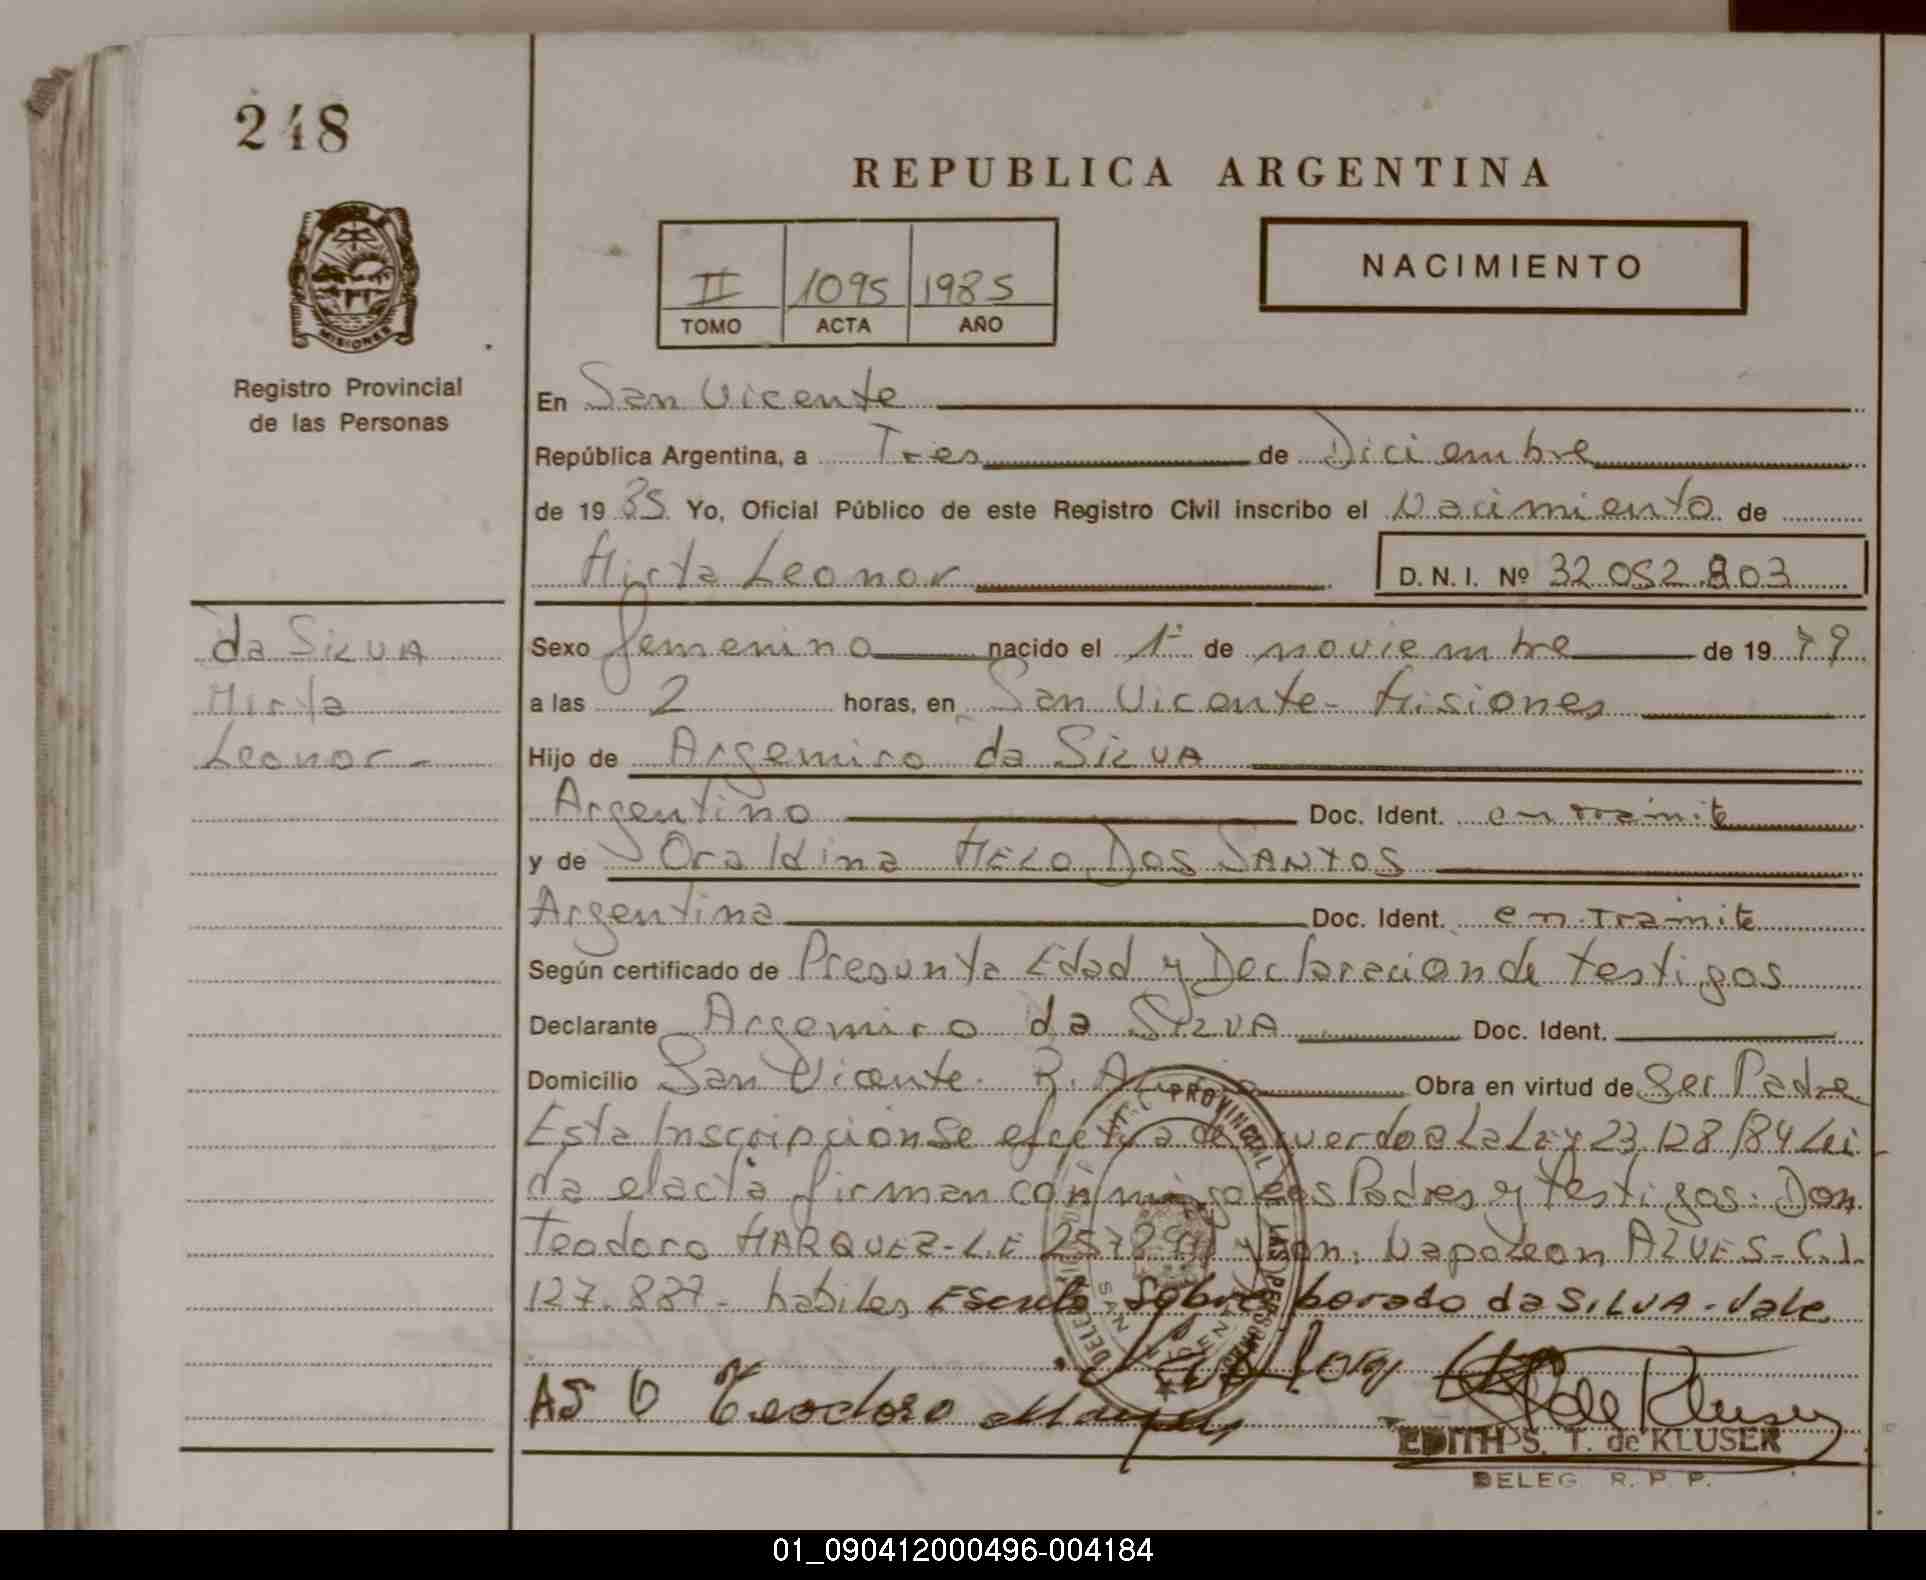 248
REPUBLICA ARGENTINA
NACIMIENTO
II 1095 1985
TOMO ACTA AÑO
MISIONES
Registro Provincial
de las Personas
En San Vicente
República Argentina, a Tres de Diciembre
de 19 85 Yo, Oficial Público de este Registro Civil inscribo el Nacimiento de
Mirta Leonor D. N. I. Nº 32 052 803
da SILVA
Mirta
Leonor -
Sexo femenino nacido el 1º de noviembre de 19 79
a las 2 horas, en San Vicente - Misiones
Hijo de Argemiro da SILVA
Argentino Doc. Ident. en tramite
y de Oraldina MELO DOS SANTOS
Argentina Doc. Ident. en tramite
Según certificado de Presunta Edad y Declaracion de testigos
Declarante Argemiro da SILVA Doc. Ident.
Domicilio San Vicente. Obra en virtud de Ser Padre
Esta Inscripcion Se efectua de acuerdo a La Ley 23.128/84 Lei
da el acta firman conmigo los Padres y testigos: Don
Teodoro MARQUEZ - L.E Don. Napoleon ALVES - C.I.
127.887 - habiles Escrito Sobre borrado da SILVA - Vale
PROVINCIAL DE LAS PERSONAS
SAN VICENTE
Teodoro
de Kluser
EDITH S. T. de KLUSER
DELEG R. P. P.
01_090412000496-004184